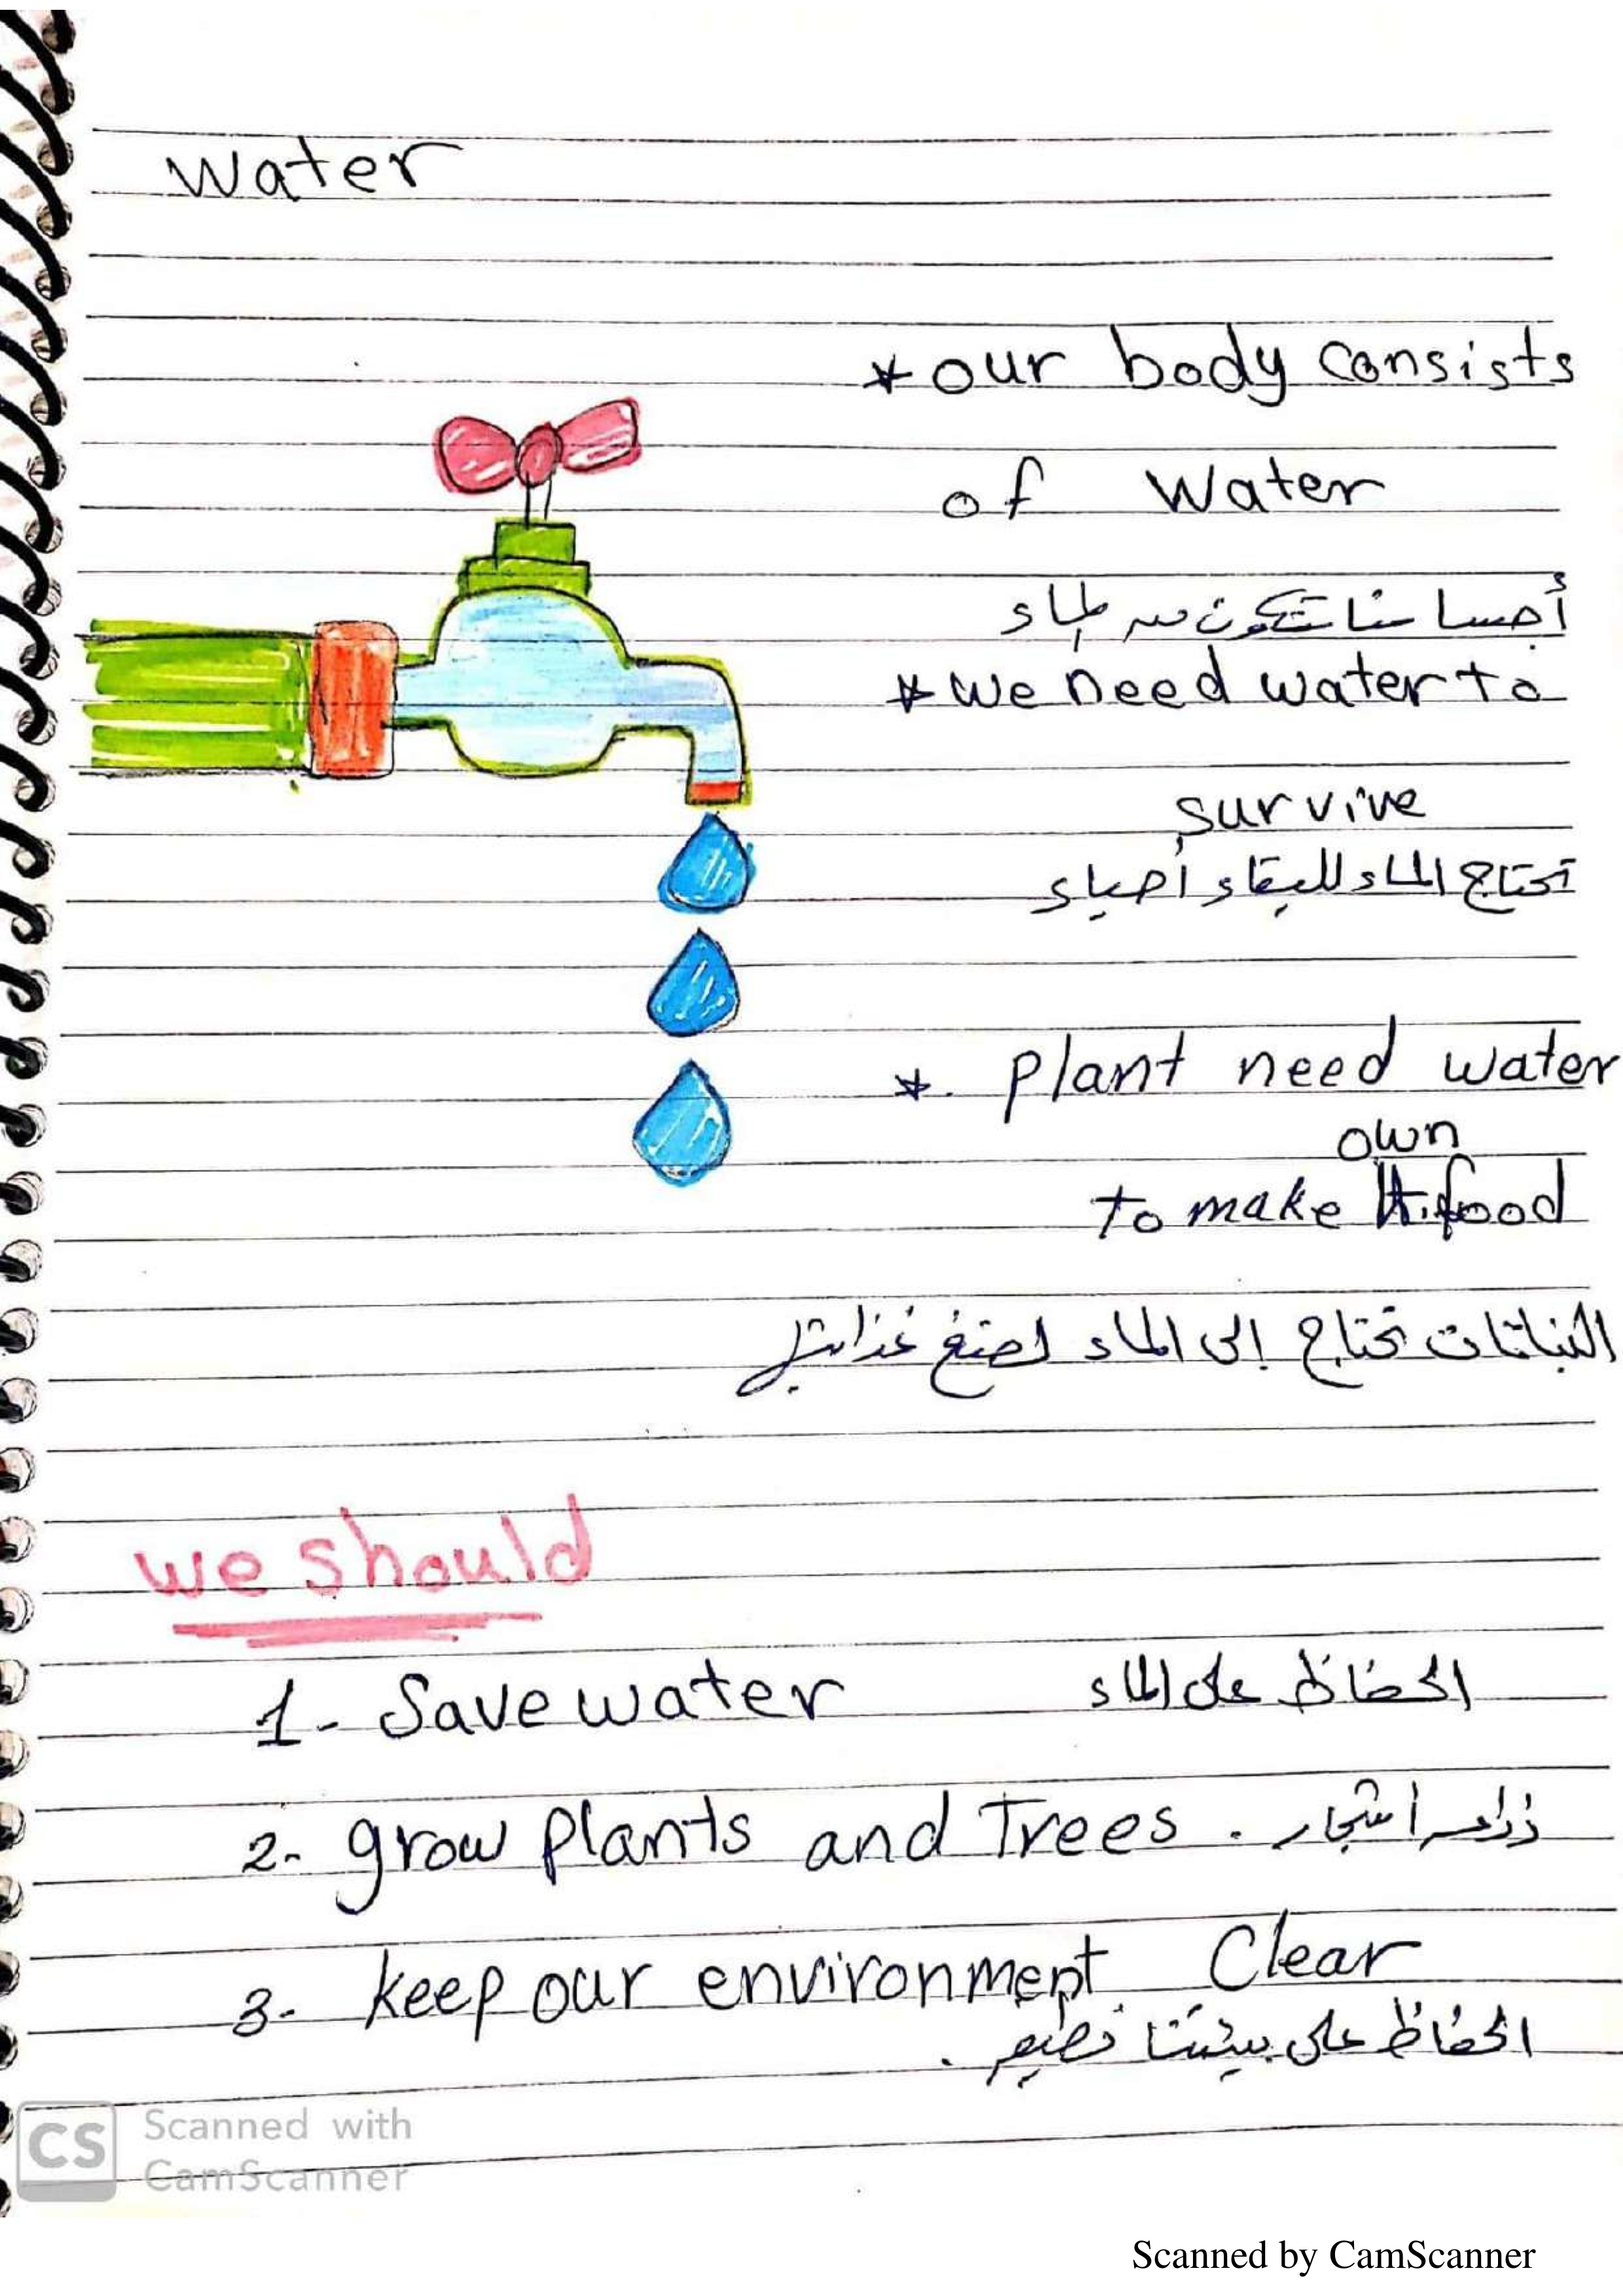 water
* our body consists
of water
أجسامنا تتكون من الماء
* we need water to
survive
تحتاج الماء للبقاء أحياء
*. plant need water
own
to make food
النباتات تحتاج إلى الماء لصنع غذائها
we should
1- Save water الحفاظ على الماء
2- grow plants and Trees . زراعة أشجار
3- keep our environment Clear
الحفاظ على بيئتنا نظيفة .
CS Scanned with
CamScanner
Scanned by CamScanner